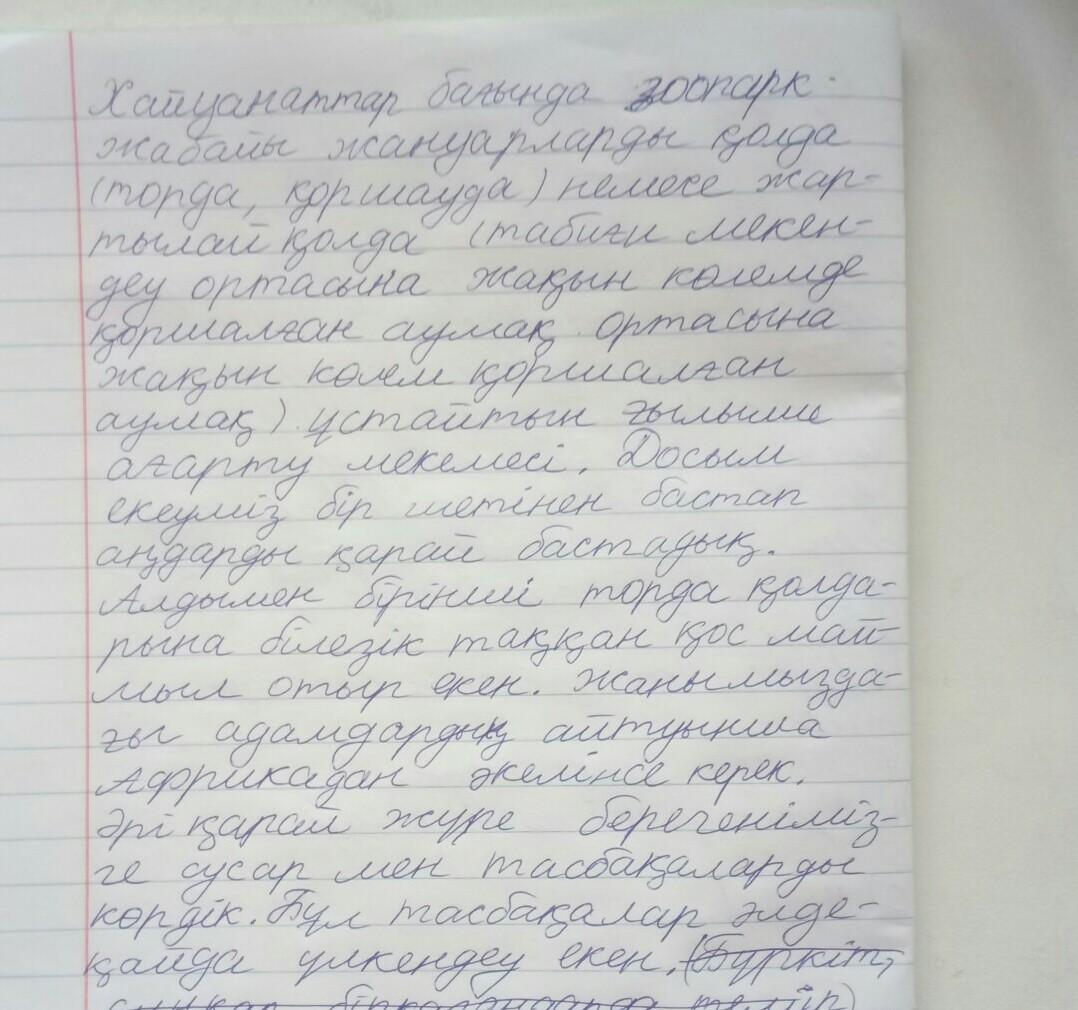 Хайуанаттар бағында зоопарк
жабайы жануарларды қолда
(торда, қоршауда) немесе жар-
тылай қолда (табиғи мекен-
деу ортасына жақын көлемде
қоршалған аумақ ортасына
жақын көлем қоршалған
аумақ) ұстайтын ғылыми
ағарту мекемесі. Досым
екеуміз бір шетінен бастап
аңдарды қарай бастадық.
Алдымен бірінші торда қолда-
рына білезік таққан қос май-
мыл отыр екен. Жанымызда-
ғы адамдардың айтуынша
Африкадан әкелінсе керек.
Әрі қарай жүре бергеніміз-
ге сусар мен тасбақаларды
көрдік. Бұл тасбақалар әлде-
қайда үлкендеу екен. (Бүркіт,